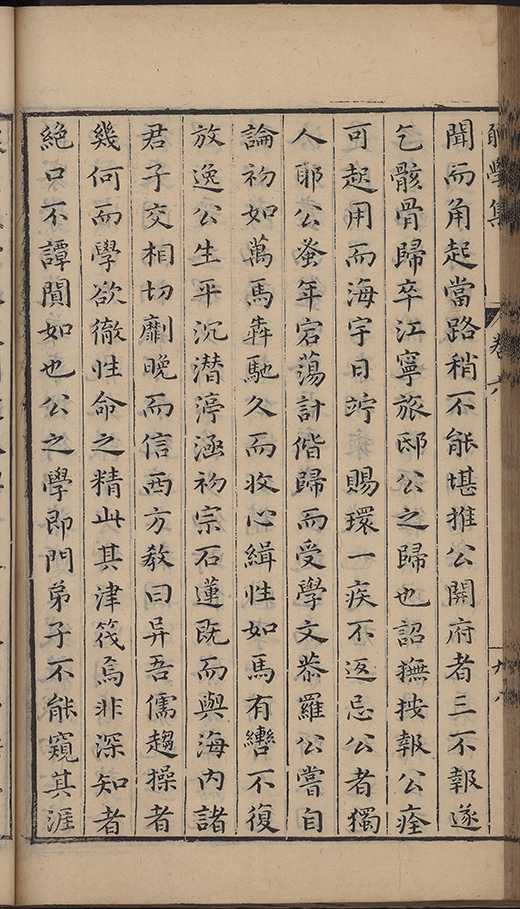 學集 卷六
聞而角起當路稍不能堪推公開府者三不報遂
乞骸骨歸卒江寧旅邸公之歸也詔撫按報公痊
可起用而海宇日竚 賜環一疾不返忌公者獨
人耶公蚤年宕蕩計偕歸而受學文恭羅公嘗自
論初如萬馬犇馳久而收心緝性如馬有轡不復
放逸公生平沉潜渟涵初宗石蓮既而與海內諸
君子交相切劘晚而信西方教曰异吾儒趨操者
幾何而學欲徹性命之精此其津筏焉非深知者
絕口不譚闃如也公之學即門弟子不能窺其涯